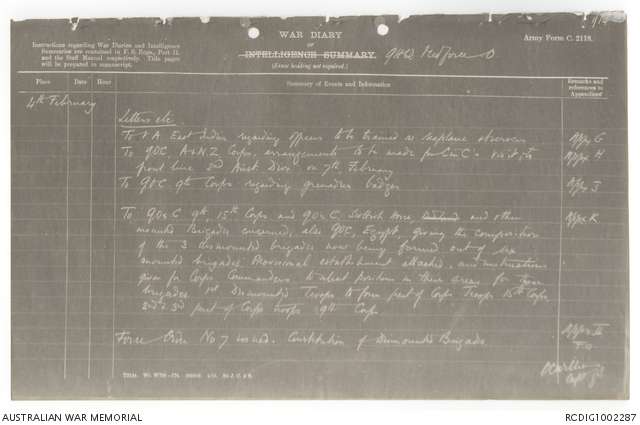 WAR DIARY
or
INTELLIGENCE SUMMARY.
(Erase heading not required.)
GHQ Medforce
Army Form C. 2118.
Instructions regarding War Diaries and Intelligence
Summaries are contained in F. S. Regs., Part II.
and the Staff Manual respectively. Title pages
will be prepared in manuscript.
Place Date Hour
Summary of Events and Information
Remarks and
references to
Appendices
4th February
Letters etc.
To V A East Indies regarding officers to be trained as seaplane observers Appx G
To GOC A & NZ Corps, arrangements to be made for C in C's visit to Appx H
front line 2nd Aust Divn on 7th February
To GOC 9th Corps regarding grenadier badges Appx J
To GOs C 9th, 15th Corps and GOs C, Scottish Horse and other Appx K
mounted Brigades concerned, also GOC, Egypt giving the composition
of the 3 dismounted brigades now being formed out of six
mounted brigades. Provisional establishment attached, and instructions
given for Corps Commanders to select positions in their areas for these
brigades 1st Dismounted Troops to form part of Corps Troops 15th Corps
2nd & 3rd part of Corps troops 9th Corps.
Force Order No 7 issued. Constitution of Dismounted Brigade.
AUSTRALIAN WAR MEMORIAL
RCDIG1002287